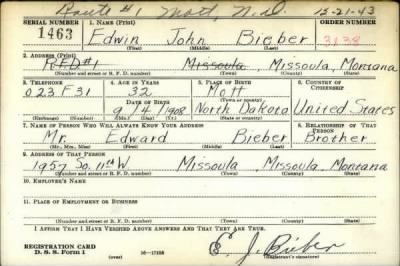 Route #1 Mott, N.D. 12-21-43
SERIAL NUMBER 1. NAME (Print) ORDER NUMBER
1463 Edwin John Bieber 3138
(First) (Middle) (Last)
2. ADDRESS (Print)
R.F.D #1 Missoula, Missoula, Montana
(Number and street or R. F. D. number) (Town) (County) (State)
3. TELEPHONE 4. AGE IN YEARS 5. PLACE OF BIRTH 6. COUNTRY OF CITIZENSHIP
023 F 31 32 Mott
DATE OF BIRTH (Town or county)
9 4 1908 North Dakota United States
(Exchange) (Number) (Mo.) (Day) (Yr.) (State or country)
7. NAME OF PERSON WHO WILL ALWAYS KNOW YOUR ADDRESS 8. RELATIONSHIP OF THAT PERSON
Mr. Edward Bieber Brother
(Mr., Mrs., Miss) (First) (Middle) (Last)
9. ADDRESS OF THAT PERSON
1957 So. 11th W Missoula, Missoula, Montana
(Number and street or R. F. D. number) (Town) (County) (State)
10. EMPLOYER'S NAME
11. PLACE OF EMPLOYMENT OR BUSINESS
(Number and street or R. F. D. number) (Town) (County) (State)
I AFFIRM THAT I HAVE VERIFIED ABOVE ANSWERS AND THAT THEY ARE TRUE.
REGISTRATION CARD
D. S. S. Form 1 (over) 16-17105 E. J. Bieber
(Registrant's signature)